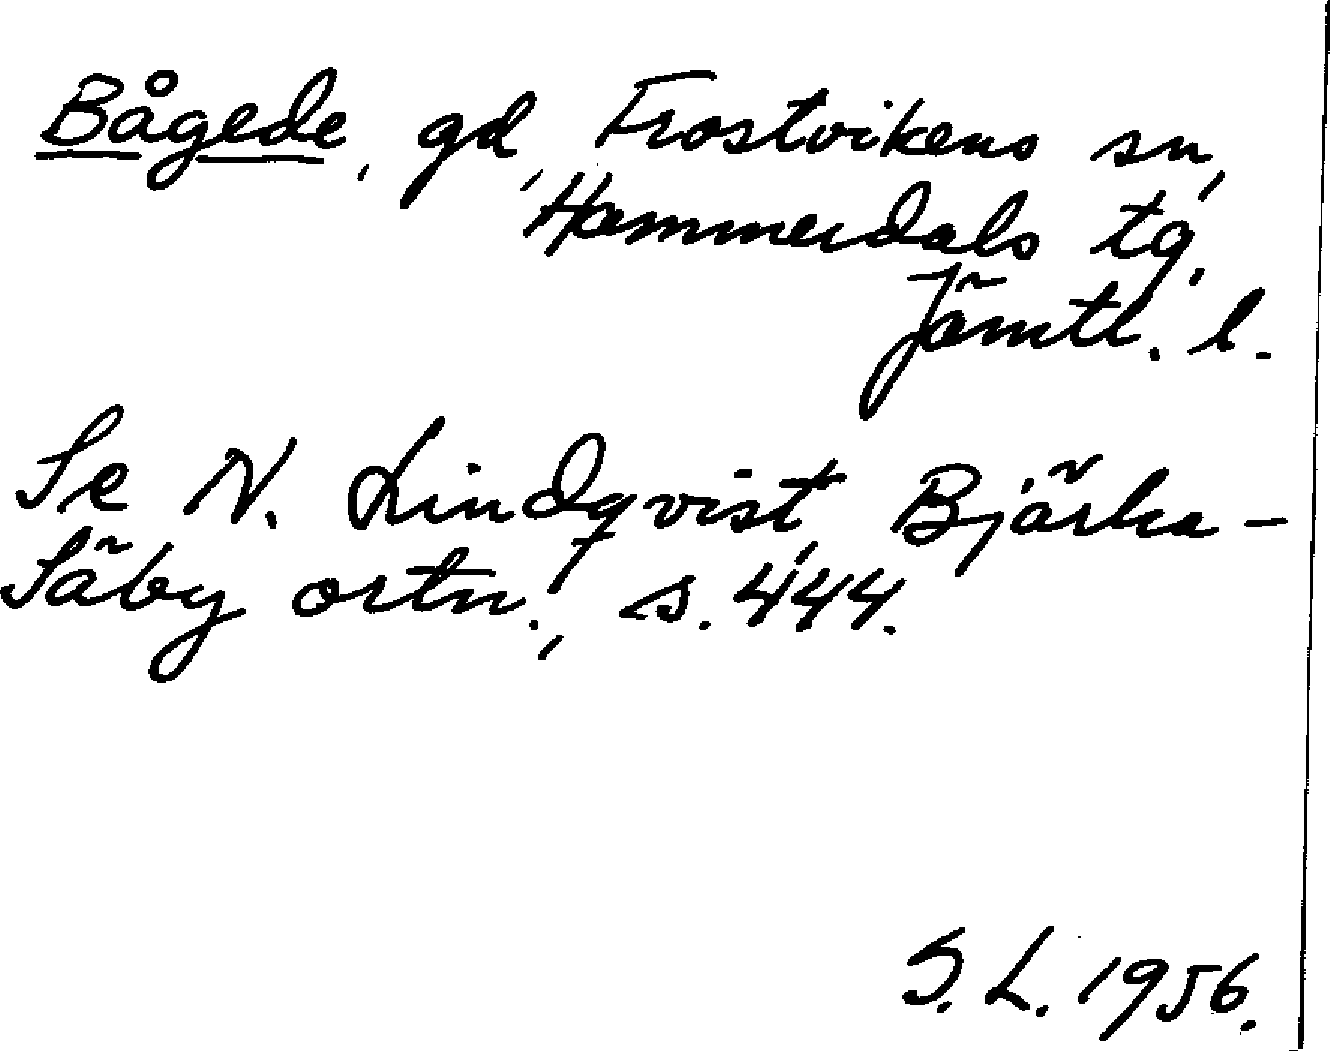 Bågede, gd, Frostvikens sn,
Hammerdals tg,
Jämtl. l.
Se N. Lindqvist, Bjärka-
Säby ortn., s. 444.
S. L. 1956.